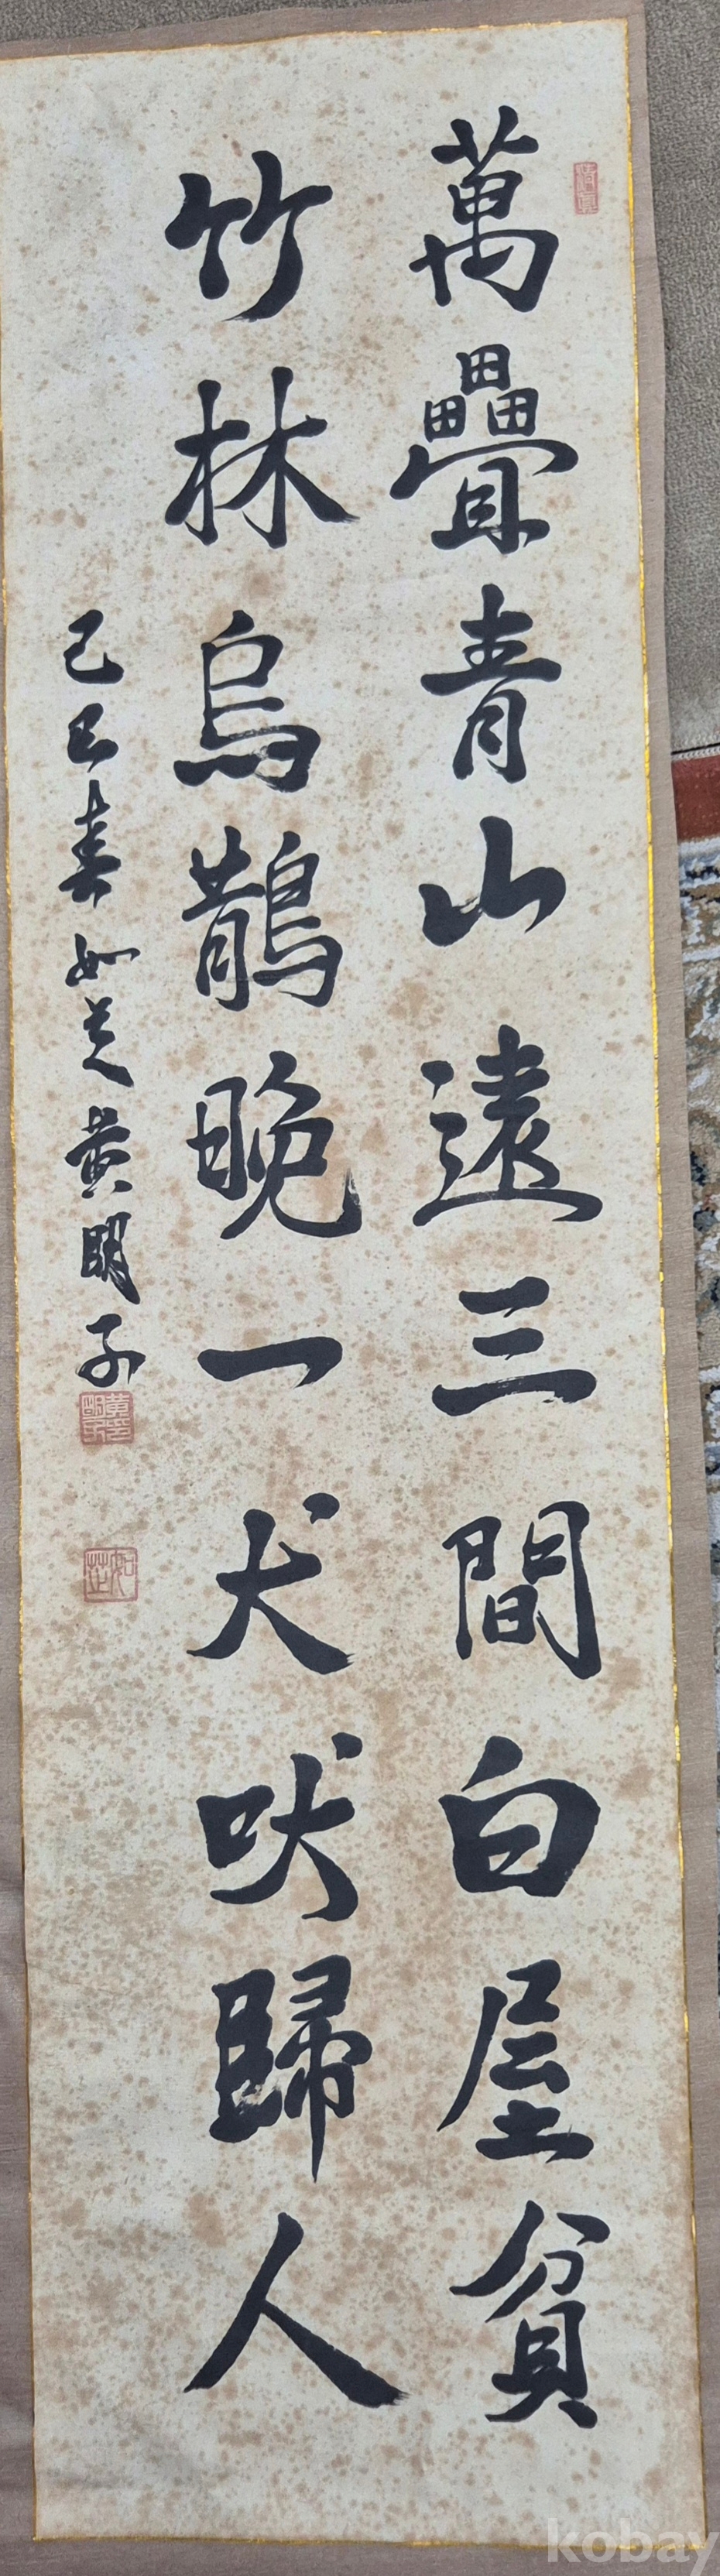 萬疊青山遠三間白屋貧
竹林烏鵲晚一犬吠歸人
己巳春如芝黃明子
kobay